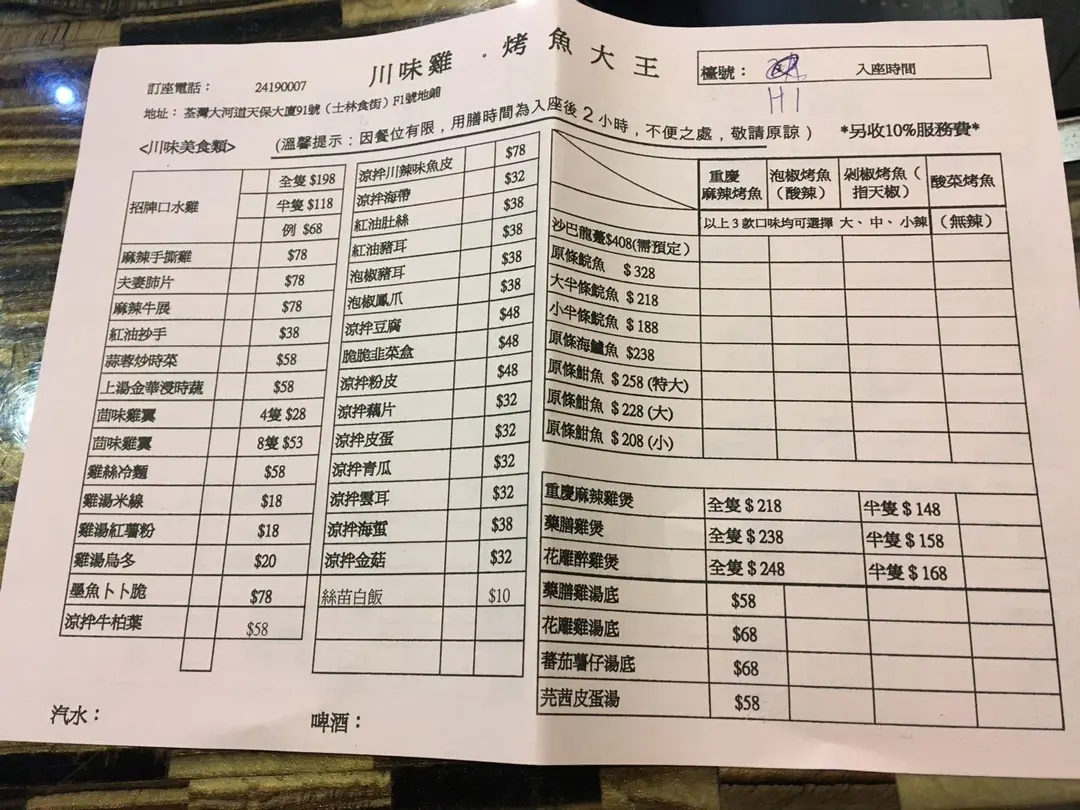 川味雞．烤魚大王
訂座電話： 24190007
地址： 荃灣大河道天保大廈91號（士林食街）F1號地鋪
檯號： H1 入座時間
(溫馨提示：因餐位有限，用膳時間為入座後2小時，不便之處，敬請原諒)
*另收10%服務費*
<川味美食類>
招牌口水雞 全隻 $198
半隻 $118
例 $68
麻辣手撕雞 $78
夫妻肺片 $78
麻辣牛展 $78
紅油抄手 $38
蒜蓉炒時菜 $58
上湯金華浸時蔬 $58
茴味雞翼 4隻 $28
茴味雞翼 8隻 $53
雞絲冷麵 $58
雞湯米線 $18
雞湯紅薯粉 $18
雞湯烏冬 $20
墨魚卜卜脆 $78
涼拌牛柏葉 $58
涼拌川辣味魚皮 $78
涼拌海帶 $32
紅油肚絲 $38
紅油豬耳 $38
泡椒豬耳 $38
泡椒鳳爪 $38
涼拌豆腐 $48
脆脆韭菜盒 $48
涼拌粉皮 $48
涼拌藕片 $32
涼拌皮蛋 $32
涼拌青瓜 $32
涼拌雲耳 $32
涼拌海蜇 $38
涼拌金菇 $32
絲苗白飯 $10
重慶麻辣烤魚 泡椒烤魚（酸辣） 剁椒烤魚（指天椒） 酸菜烤魚
以上3款口味均可選擇 大、中、小辣 （無辣）
沙巴龍躉$408(需預定)
原條鯇魚 $328
大半條鯇魚 $218
小半條鯇魚 $188
原條海鱸魚 $238
原條鉗魚 $258 (特大)
原條鉗魚 $228 (大)
原條鉗魚 $208 (小)
重慶麻辣雞煲 全隻 $218 半隻 $148
藥膳雞煲 全隻 $238 半隻 $158
花雕醉雞煲 全隻 $248 半隻 $168
藥膳雞湯底 $58
花雕雞湯底 $68
蕃茄薯仔湯底 $68
芫茜皮蛋湯 $58
汽水： 啤酒：